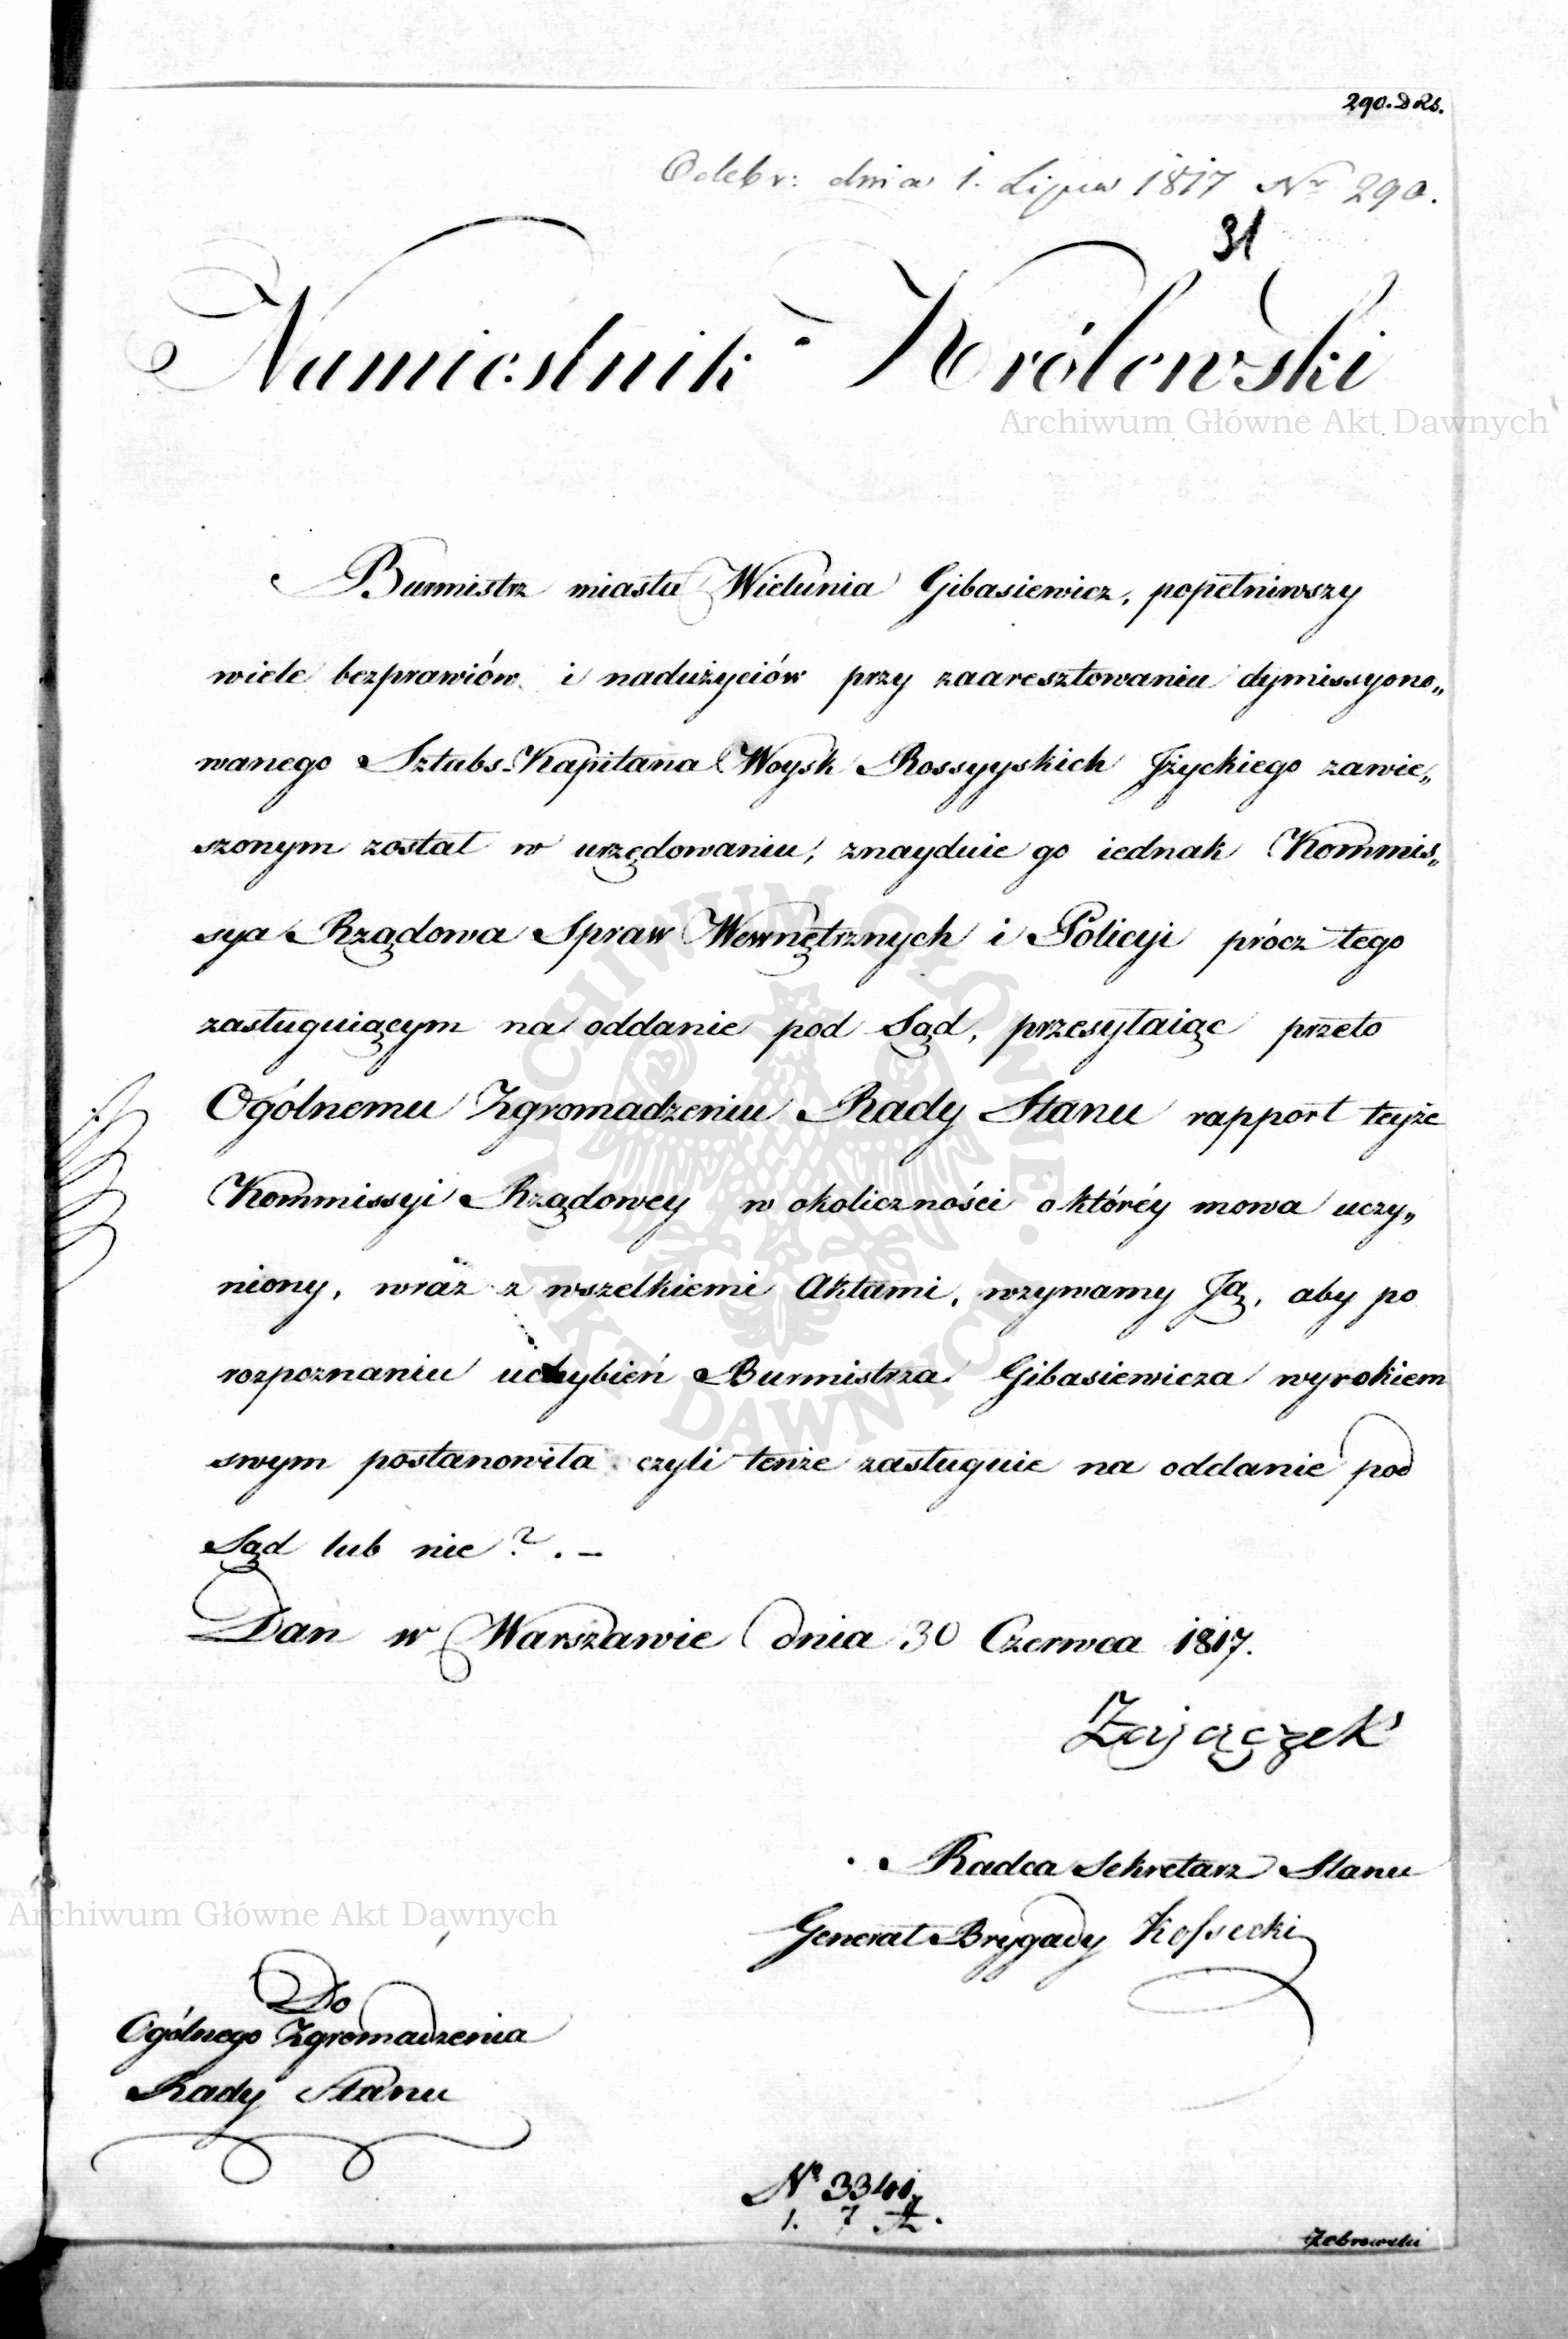 290. D RS.
Odebr: dnia 1. Lipca 1817 Nr 290.
31
Namiestnik Królewski
Archiwum Główne Akt Dawnych
Burmistrz miasta Wielunia Gibasiewicz, popełniwszy
wiele bezprawiów i nadużyciów przy zaaresztowaniu dymissyono„
wanego Sztabs-Kapitana Woysk Rossyyskich Jżyckiego zawie„
szonym został w urzędowaniu, znayduie go iednak Kommis„
sya Rządowa Spraw Wewnętrznych i Policyi prócz tego
zasługuiącym na oddanie pod Sąd, przesyłaiąc przeto
Ogólnemu Zgromadzeniu Rady Stanu rapport teyże
Kommissyi Rządowey w okoliczności o któréy mowa uczy„
niony, wraz z wszelkiemi Aktami, wzywamy Ją, aby po
rozpoznaniu uchybień Burmistrza Gibasiewicza wyrokiem
swym postanowiła czyli tenże zasługuie na oddanie pod
Sąd lub nie? . –
Dan w Warszawie dnia 30 Czerwca 1817.
Zajączek
Radca Sekretarz Stanu
Generał Brygady Kossecki
Archiwum Główne Akt Dawnych
Do
Ogólnego Zgromadzenia
Rady Stanu
Nr 3341
1. 7
Żebrowski
ARCHIWUM GŁÓWNE AKT DAWNYCH